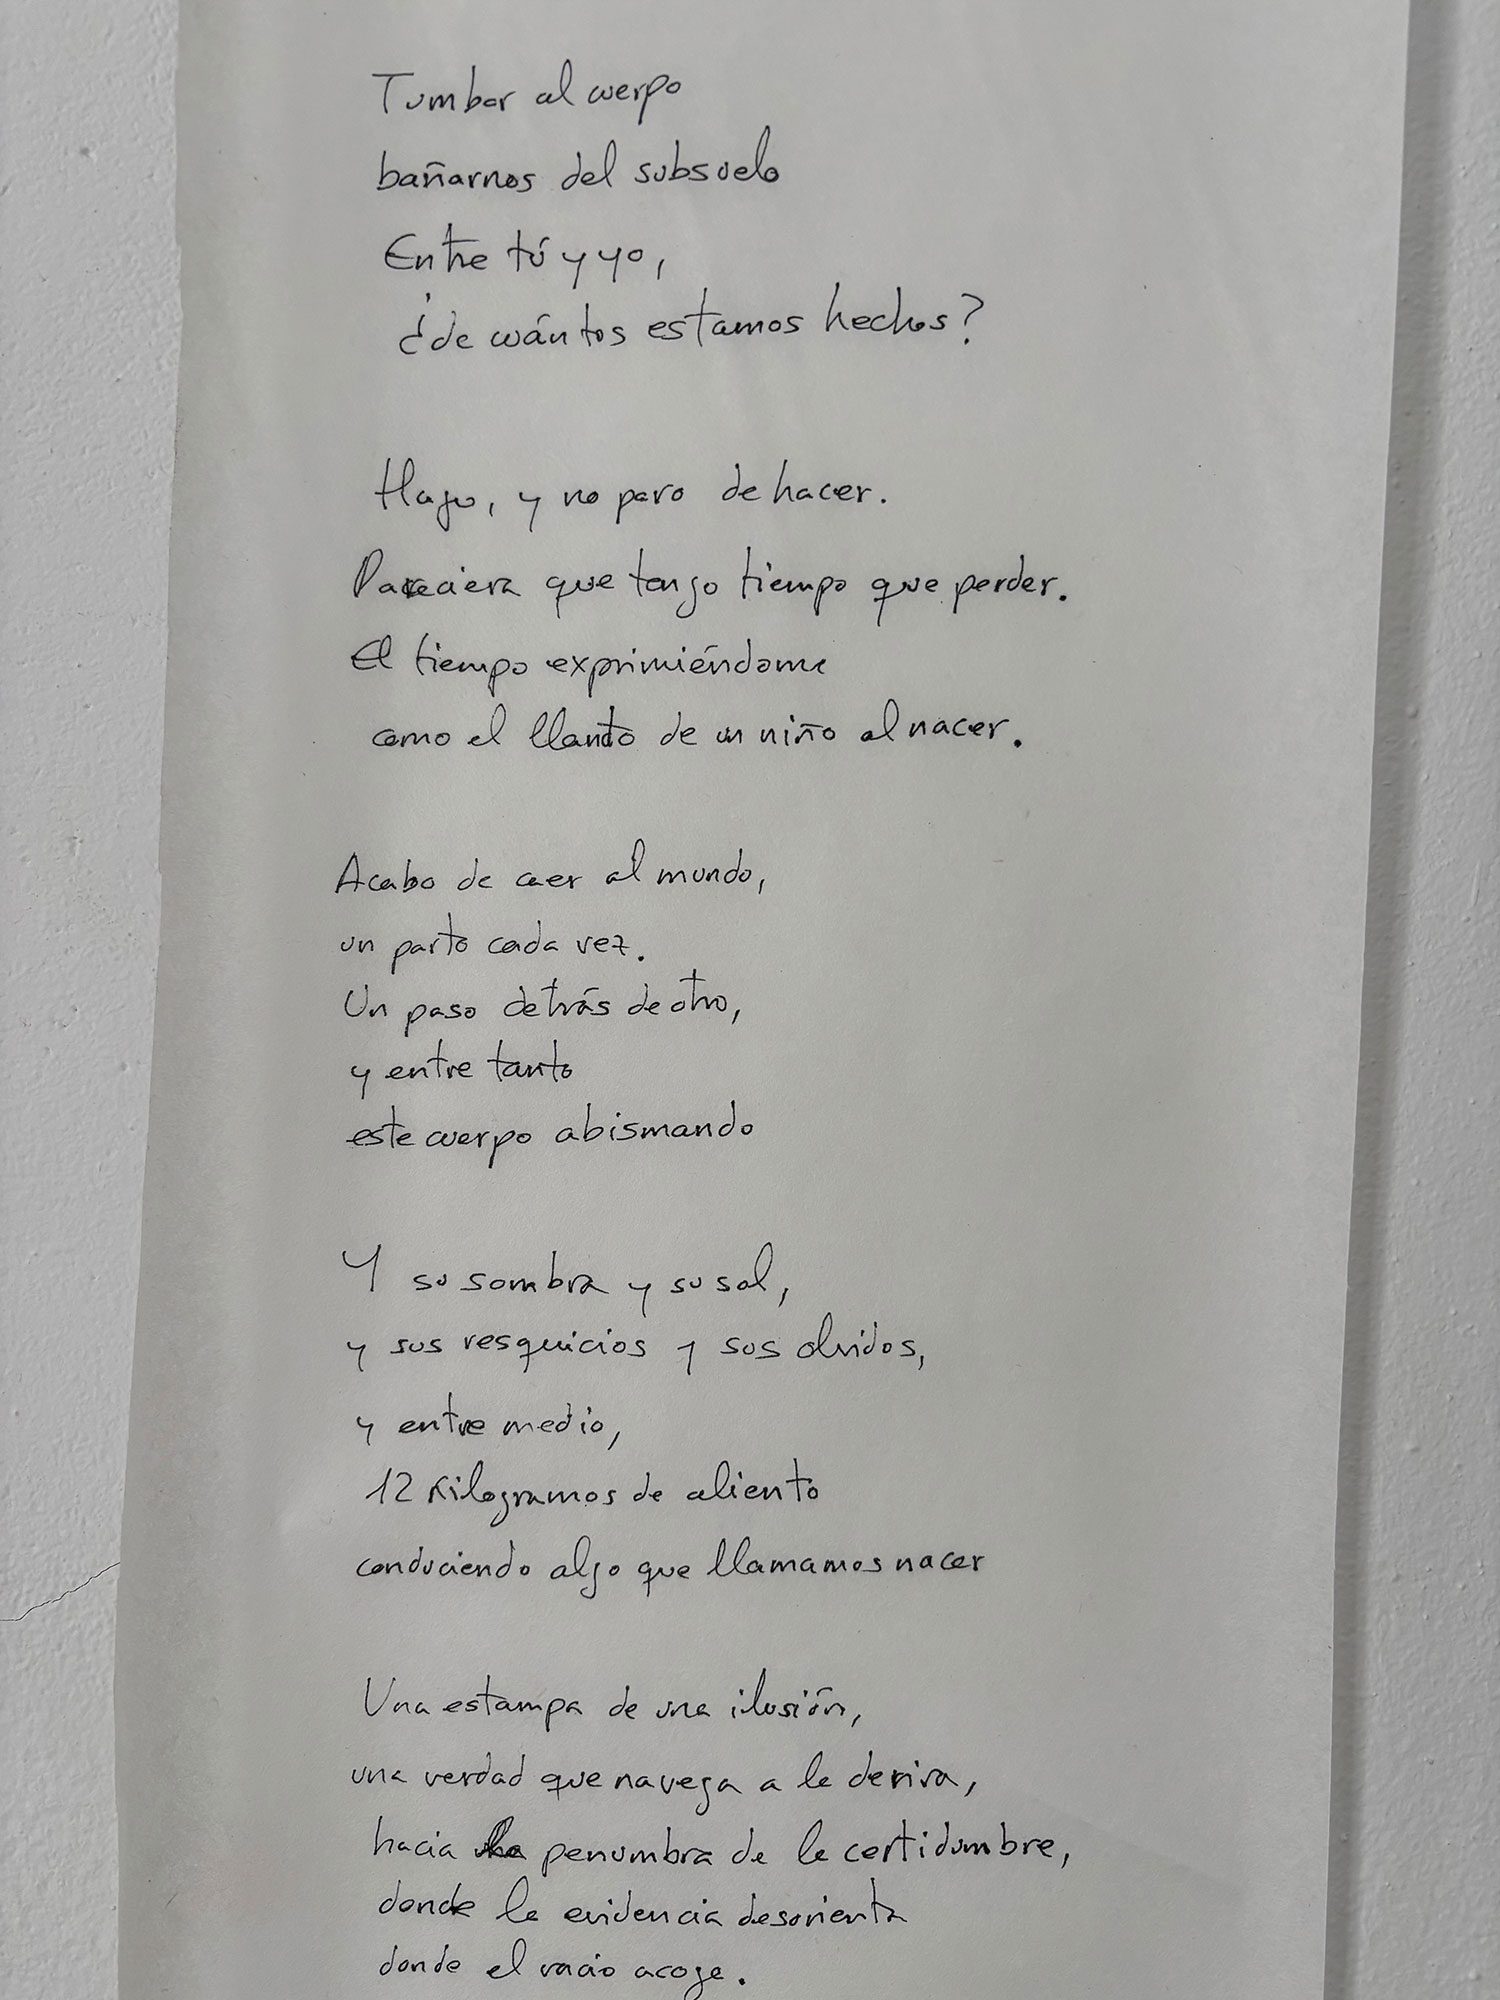 Tumbar al cuerpo
bañarnos del subsuelo
Entre tú y yo,
¿de cuántos estamos hechos?
Hago, y no paro de hacer.
Pareciera que tengo tiempo que perder.
El tiempo exprimiéndome
como el llanto de un niño al nacer.
Acabo de caer al mundo,
un parto cada vez.
Un paso detrás de otro,
y entre tanto
este cuerpo abismando
Y su sombra y su sal,
y sus resquicios y sus olvidos,
y entre medio,
12 kilogramos de aliento
conduciendo algo que llamamos nacer
Una estampa de una ilusión,
una verdad que navega a la deriva,
hacia la penumbra de la certidumbre,
donde la evidencia desorienta
donde el vacío acoge.